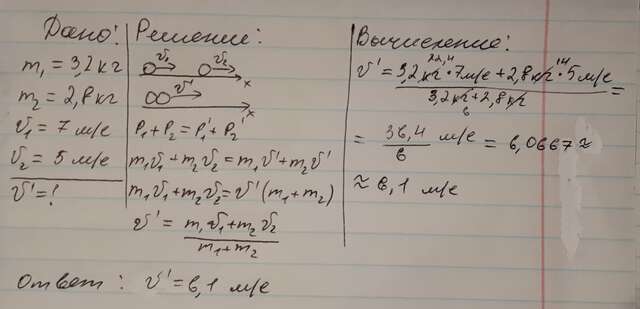 Дано:
m₁ = 3,2 кг
m₂ = 2,8 кг
v₁ = 7 м/с
v₂ = 5 м/с
v' = ?
Решение:
v₁ v₂
x
v'
x
p₁ + p₂ = p₁' + p₂'
m₁v₁ + m₂v₂ = m₁v' + m₂v'
m₁v₁ + m₂v₂ = v' (m₁ + m₂)
v' = (m₁v₁ + m₂v₂) / (m₁ + m₂)
Вычисление:
22,4 14
v' = (3,2 кг · 7 м/с + 2,8 кг · 5 м/с) / (3,2 кг + 2,8 кг) =
6
= 36,4 / 6 м/с = 6,0667 ≈
≈ 6,1 м/с
Ответ: v' = 6,1 м/с